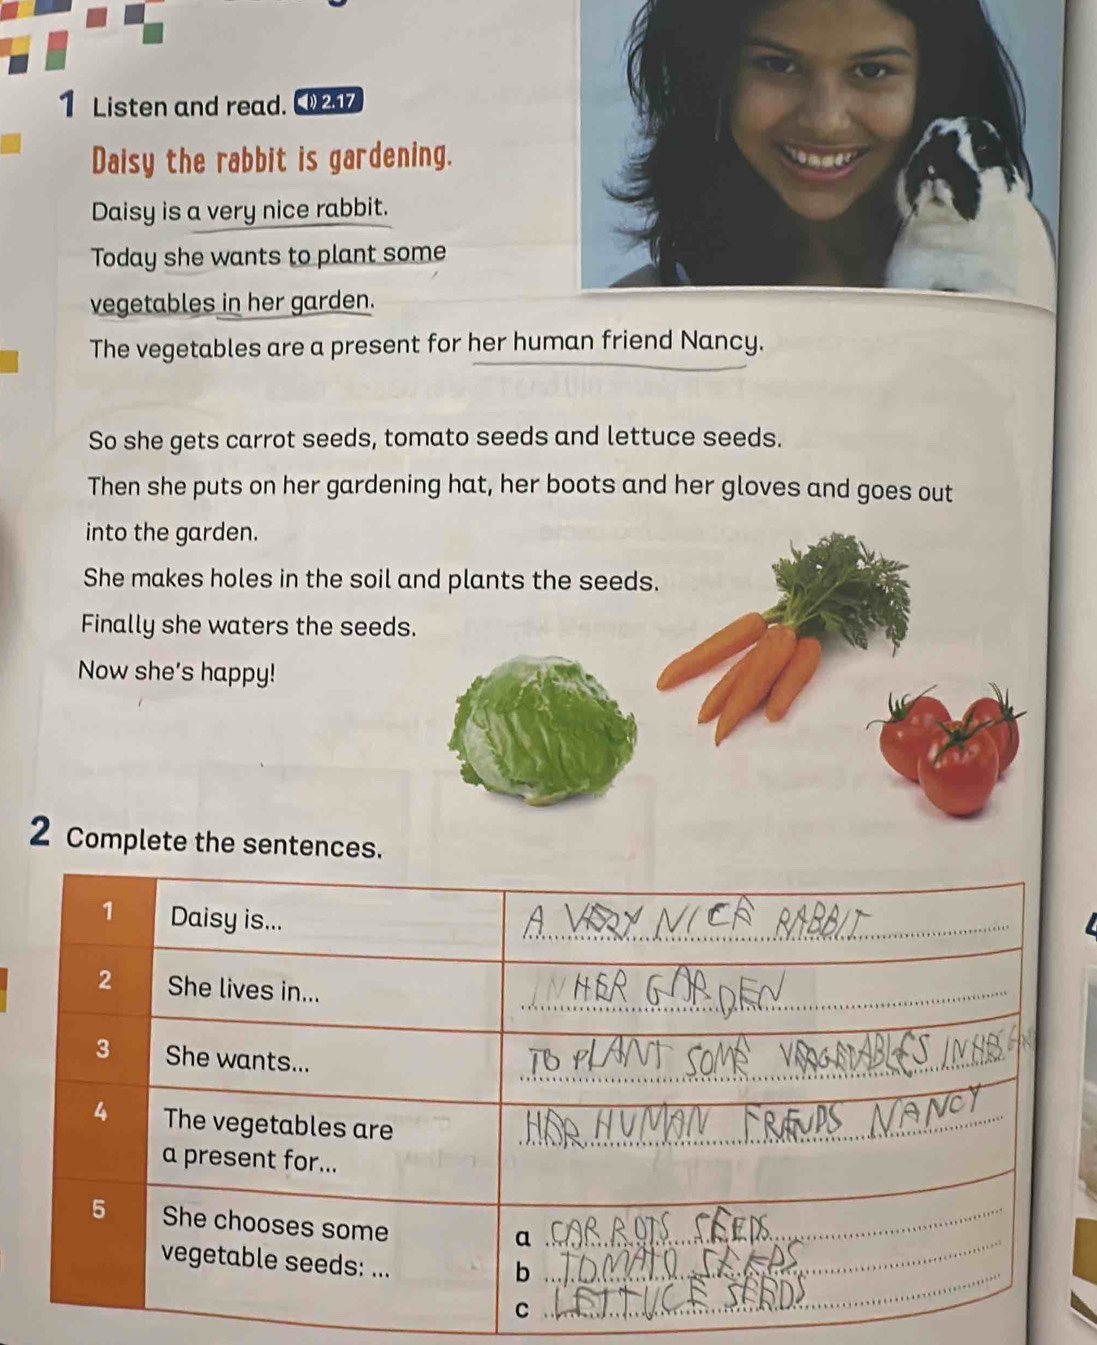 1 Listen and read. 2.17
Daisy the rabbit is gardening.
Daisy is a very nice rabbit.
Today she wants to plant some
vegetables in her garden.
The vegetables are a present for her human friend Nancy.
So she gets carrot seeds, tomato seeds and lettuce seeds.
Then she puts on her gardening hat, her boots and her gloves and goes out
into the garden.
She makes holes in the soil and plants the seeds.
Finally she waters the seeds.
Now she's happy!
2 Complete the sentences.
1 Daisy is... A VERY NICE RABBIT
2 She lives in... IN HER GARDEN
3 She wants... TO PLANT SOME VEGETABLES IN HER
4 The vegetables are HER HUMAN FRENDS NANCY
a present for...
5 She chooses some a CARROTS SEEDS
vegetable seeds: ... b TOMATO SEEDS
c LETTUCE SEEDS